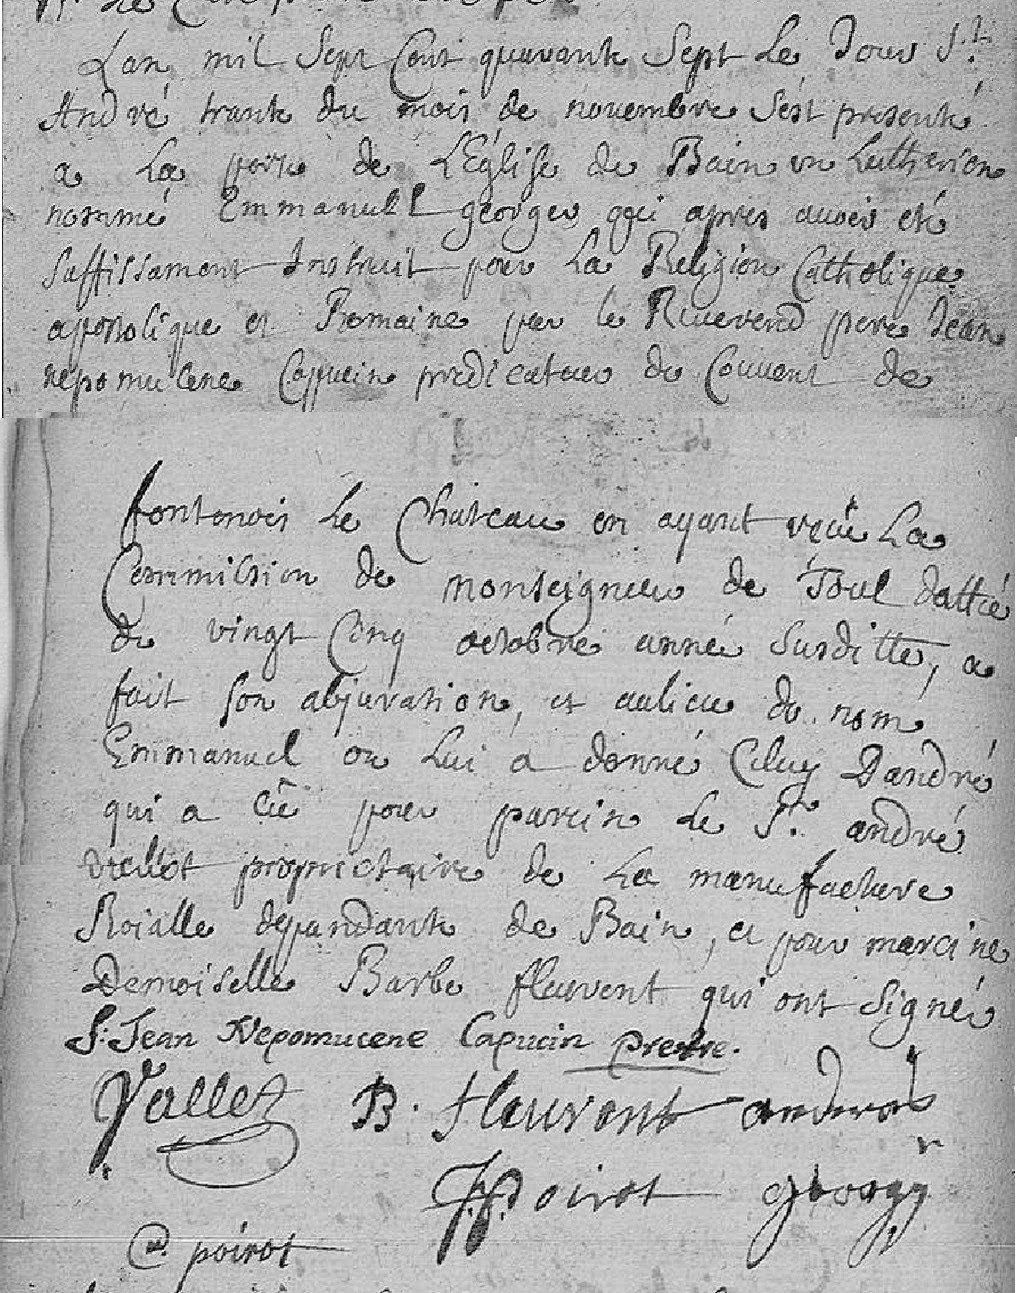 Lan mil Sept Cent quarante Sept le Jour St.
André trante du mois de novembre S'est présenté
a La porte de L'Église de Bain un Lutherien
nommé Emmanuel georges qui apres avoir eté
Suffissament Instruit pour La Religion Catholique
apostolique et Romaine par le Rnuerend pere Jean
nepomucene Cappucin predicateur du Couvent de
fontenois le Chateau en ayant reçû La
Commission de monseigneur de Toul dattée
du vingt Cinq octobre année Susditte, a
fait son abjuration, et aulieu du nom
Emmanuel on Lui a donné Celuy Dandré
qui a eû pour parein le Sr. andré
vallet propriétaire de La manufacture
Roialle dependante de Bain, et pour mareine
Demoiselle Barbe fleurent qui ont Signés
f. Jean Nepomucene Capucin prestre.
Vallet B. fleurent andreas
Poirot georgy
poirot